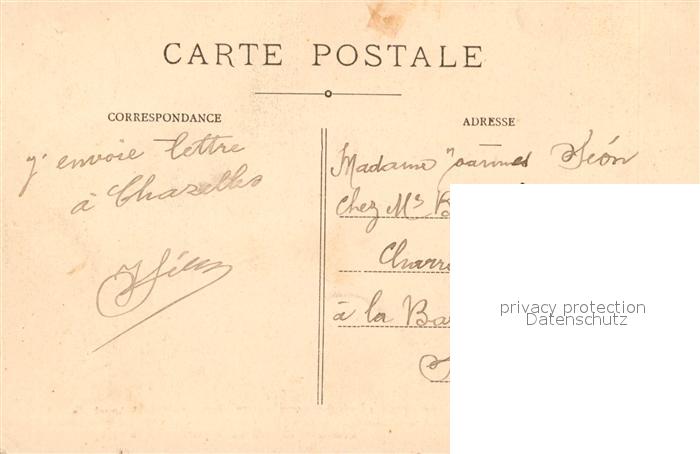 CARTE POSTALE
CORRESPONDANCE
j'envoie lettre
à Chazelles
ADRESSE
Madame Joannès
Chez Mr B
Charr
à la Ba
privacy protection
Datenschutz